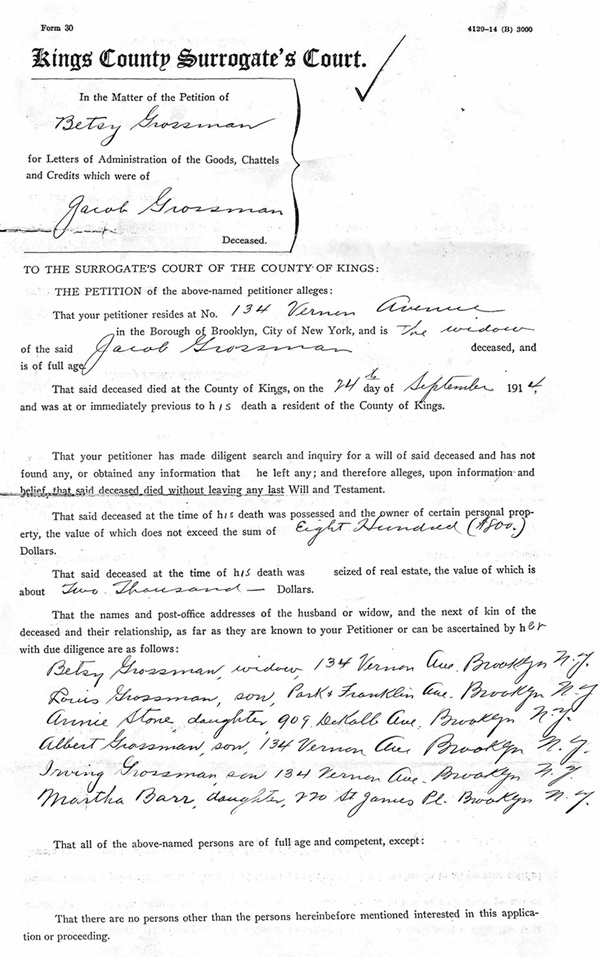 Form 30
4129-14 (B) 3000
Kings County Surrogate's Court.
In the Matter of the Petition of
Betsy Grossman
for Letters of Administration of the Goods, Chattels
and Credits which were of
Jacob Grossman
Deceased.
TO THE SURROGATE'S COURT OF THE COUNTY OF KINGS:
THE PETITION of the above-named petitioner alleges:
That your petitioner resides at No. 134 Vernon Avenue
in the Borough of Brooklyn, City of New York, and is The widow
of the said Jacob Grossman deceased, and
is of full age.
That said deceased died at the County of Kings, on the 24th day of September 1914,
and was at or immediately previous to his death a resident of the County of Kings.
That your petitioner has made diligent search and inquiry for a will of said deceased and has not
found any, or obtained any information that he left any; and therefore alleges, upon information and
belief, that said deceased died without leaving any last Will and Testament.
That said deceased at the time of his death was possessed and the owner of certain personal prop-
erty, the value of which does not exceed the sum of Eight Hundred ($800.)
Dollars.
That said deceased at the time of his death was seized of real estate, the value of which is
about Two Thousand — Dollars.
That the names and post-office addresses of the husband or widow, and the next of kin of the
deceased and their relationship, as far as they are known to your Petitioner or can be ascertained by her
with due diligence are as follows:
Betsy Grossman, widow, 134 Vernon Ave. Brooklyn N.Y.
Louis Grossman, son, Park & Franklin Ave. Brooklyn N.Y
Annie Stone, daughter, 909 DeKalb Ave, Brooklyn N.Y.
Albert Grossman, son, 134 Vernon Ave Brooklyn N.Y.
Irving Grossman, son 134 Vernon Ave. Brooklyn N.Y.
Martha Barr, daughter, 220 St James Pl. Brooklyn N.Y.
That all of the above-named persons are of full age and competent, except:
That there are no persons other than the persons hereinbefore mentioned interested in this applica-
tion or proceeding.